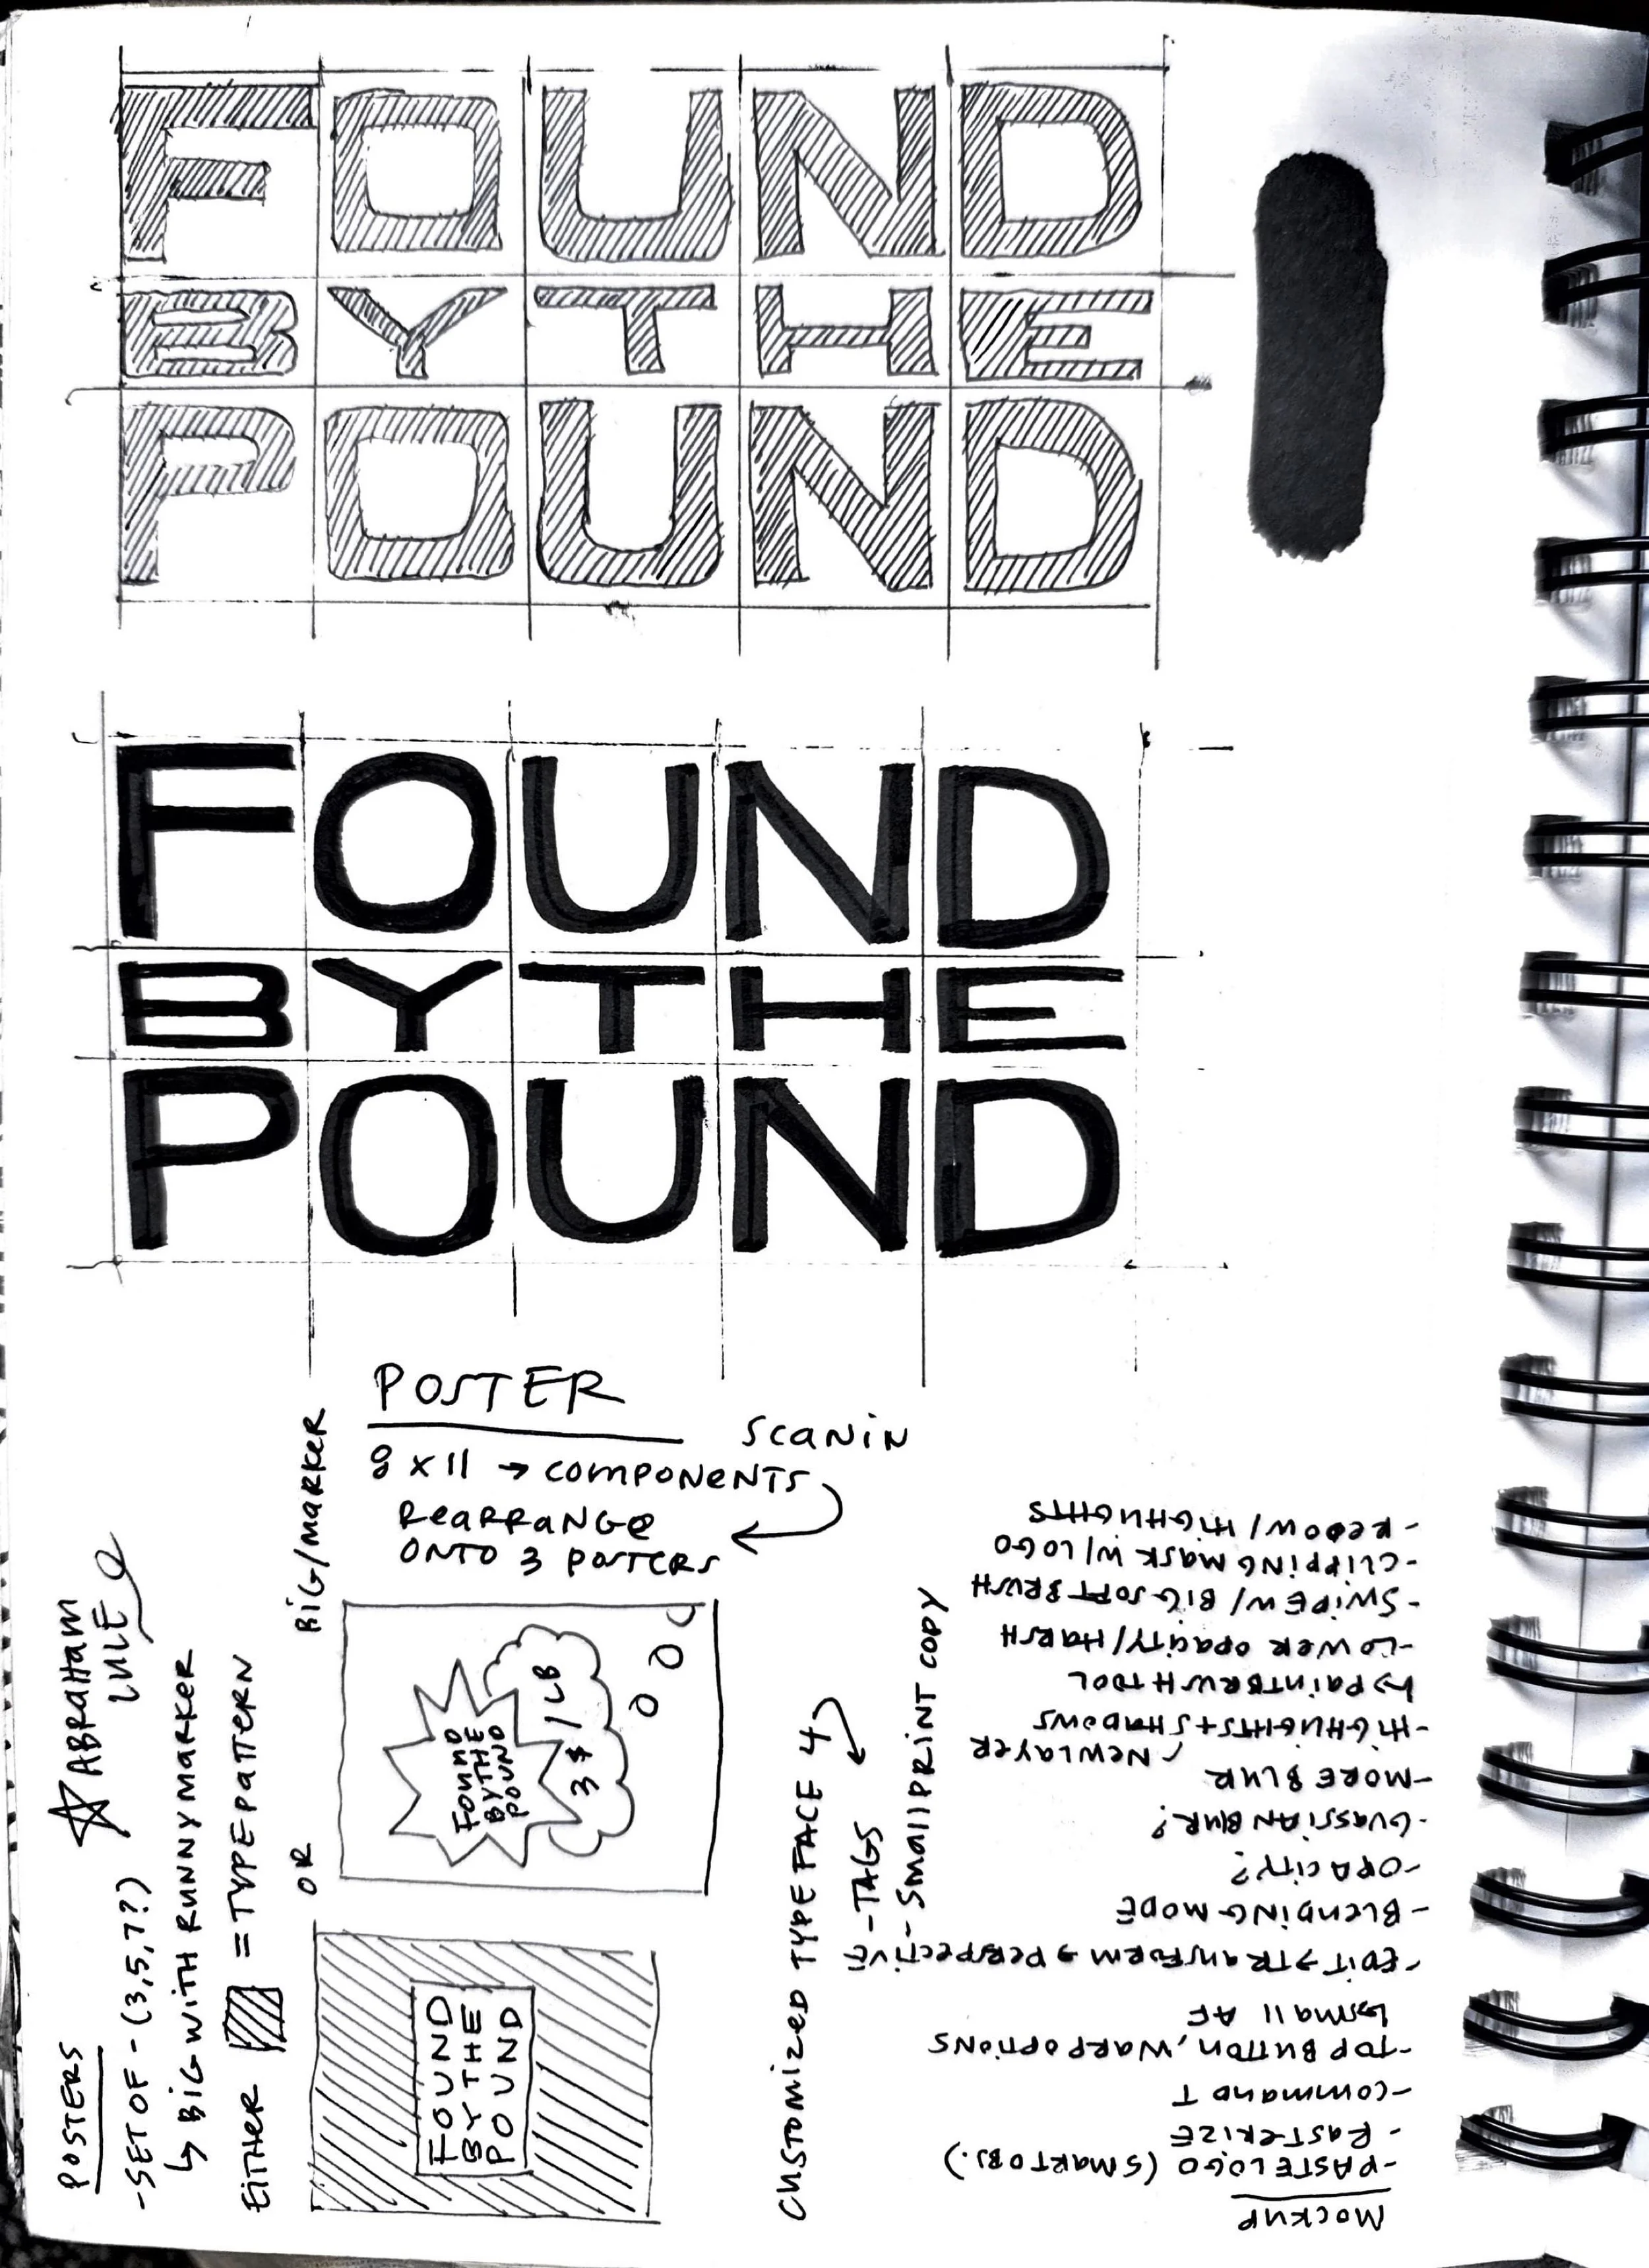 FOUND
BYTHE
POUND
FOUND
BYTHE
POUND
POSTER
SCANIN
8 X 11 → COMPONENTS
REARRANGE
ONTO 3 POSTERS
BIG/MARKER
POSTERS
-SET OF - (3,5,7??)
↳ BIG WITH RUNNY MARKER
EITHER = TYPE PATTERN
OR
☆ ABRAHAM
LULE
FOUND
BY THE
POUND
FOUND
BYTHE
POUND
3 $ / LB
CUSTOMIZED TYPEFACE 4
-TAGS
-SMALL PRINT COPY
MOCKUP
-PASTE LOGO (SMART OBJ.)
-RASTERIZE
-COMMAND T
-TOP BUTTON, WARP OPTIONS
↳small AF
-EDIT → TRANSFORM → PERSPECTIVE
-BLENDING MODE
-OPACITY?
-GUASSIAN BLUR?
-MORE BLUR
NEW LAYER
-HIGHLIGHTS + SHADOWS
↳ PAINTBRUSH TOOL
-LOWER OPACITY/HARSH
-SWIPE W/ BIG SOFT BRUSH
-CLIPPING MASK W/ LOGO
-REDO W/ HIGHLIGHTS